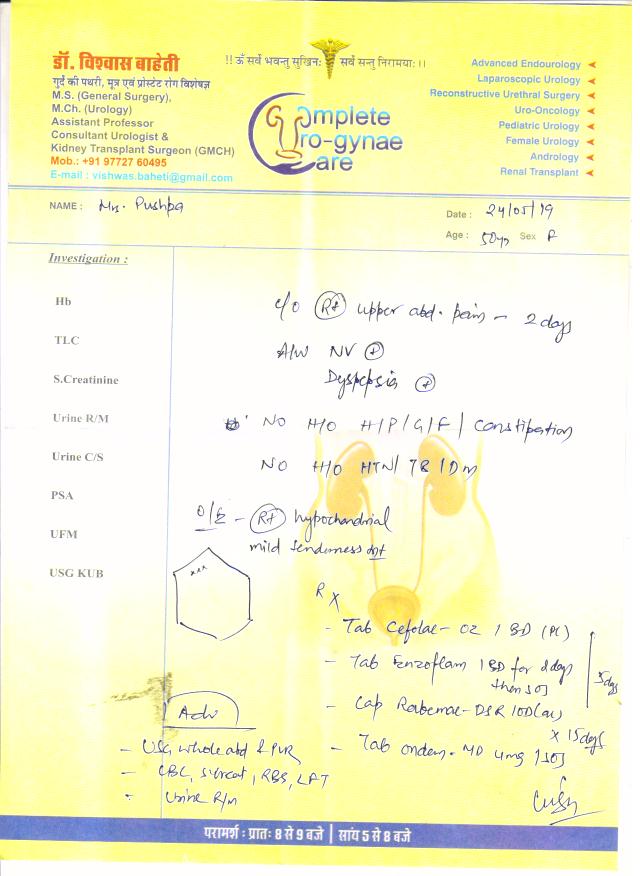 डॉ. विश्वास बाहेती
गुर्दे की पथरी, मूत्र एवं प्रोस्टेट रोग विशेषज्ञ
M.S. (General Surgery),
M.Ch. (Urology)
Assistant Professor
Consultant Urologist &
Kidney Transplant Surgeon (GMCH)
Mob.: +91 97727 60495
E-mail : vishwas.baheti@gmail.com
!! ॐ सर्वे भवन्तु सुखिनः सर्वे सन्तु निरामयाः ।।
Complete
Uro-gynae
Care
Advanced Endourology
Laparoscopic Urology
Reconstructive Urethral Surgery
Uro-Oncology
Pediatric Urology
Female Urology
Andrology
Renal Transplant
NAME : Mrs. Pushpa
Date : 24/05/19
Age : 50yr Sex F
Investigation :
Hb
TLC
S.Creatinine
Urine R/M
Urine C/S
PSA
UFM
USG KUB
C/O Rt upper abd. pain - 2 days
A/W NV +
Dyspepsia +
NO H/O H/P/G/F/ Constipation
NO H/O HTN/ TB/DM
O/E - Rt hypochondrial
mild tenderness
xxx
Rx
- Tab Cefolac-OZ 1 BD (PC)
- Tab Enzoflam 1 BD for 2 days
then SOS
5 days
- Cap Rabemac-DSR 1OD (ac)
x 15 days
- Tab ondem-MD 4mg 1 SOS
Adv
- USG whole abd & PVR
- CBC, S.Creat, RBS, LFT
- Urine R/M
परामर्श : प्रातः 8 से 9 बजे | सांय 5 से 8 बजे